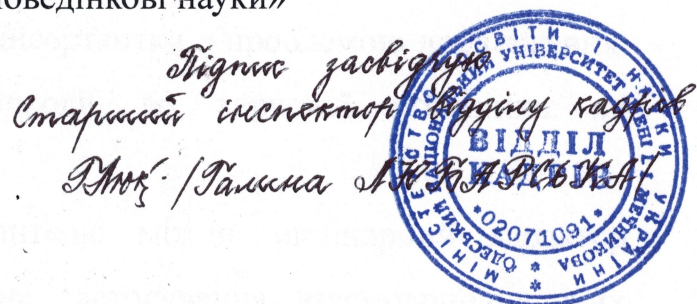 поведінкові науки»
Підпис засвідчую
Старший інспектор відділу кадрів
/Галина ЛЮБАРСЬКА/
МІНІСТЕРСТВО ОСВІТИ І НАУКИ УКРАЇНИ
ОДЕСЬКИЙ НАЦІОНАЛЬНИЙ УНІВЕРСИТЕТ ІМЕНІ І.І. МЕЧНИКОВА
ВІДДІЛ
КАДРІВ
*02071091*